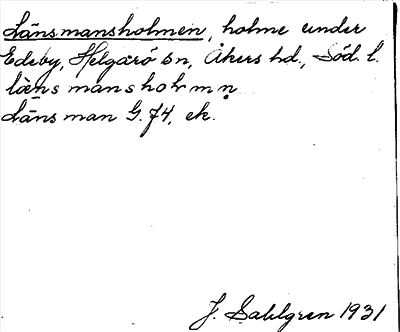 Länsmansholmen, holme under
Edeby, Helgarö sn, Åkers hd, Söd. l.
lä̀nsmansholmn̥
Länsman G. 74, ek.
J. Sahlgren 1931